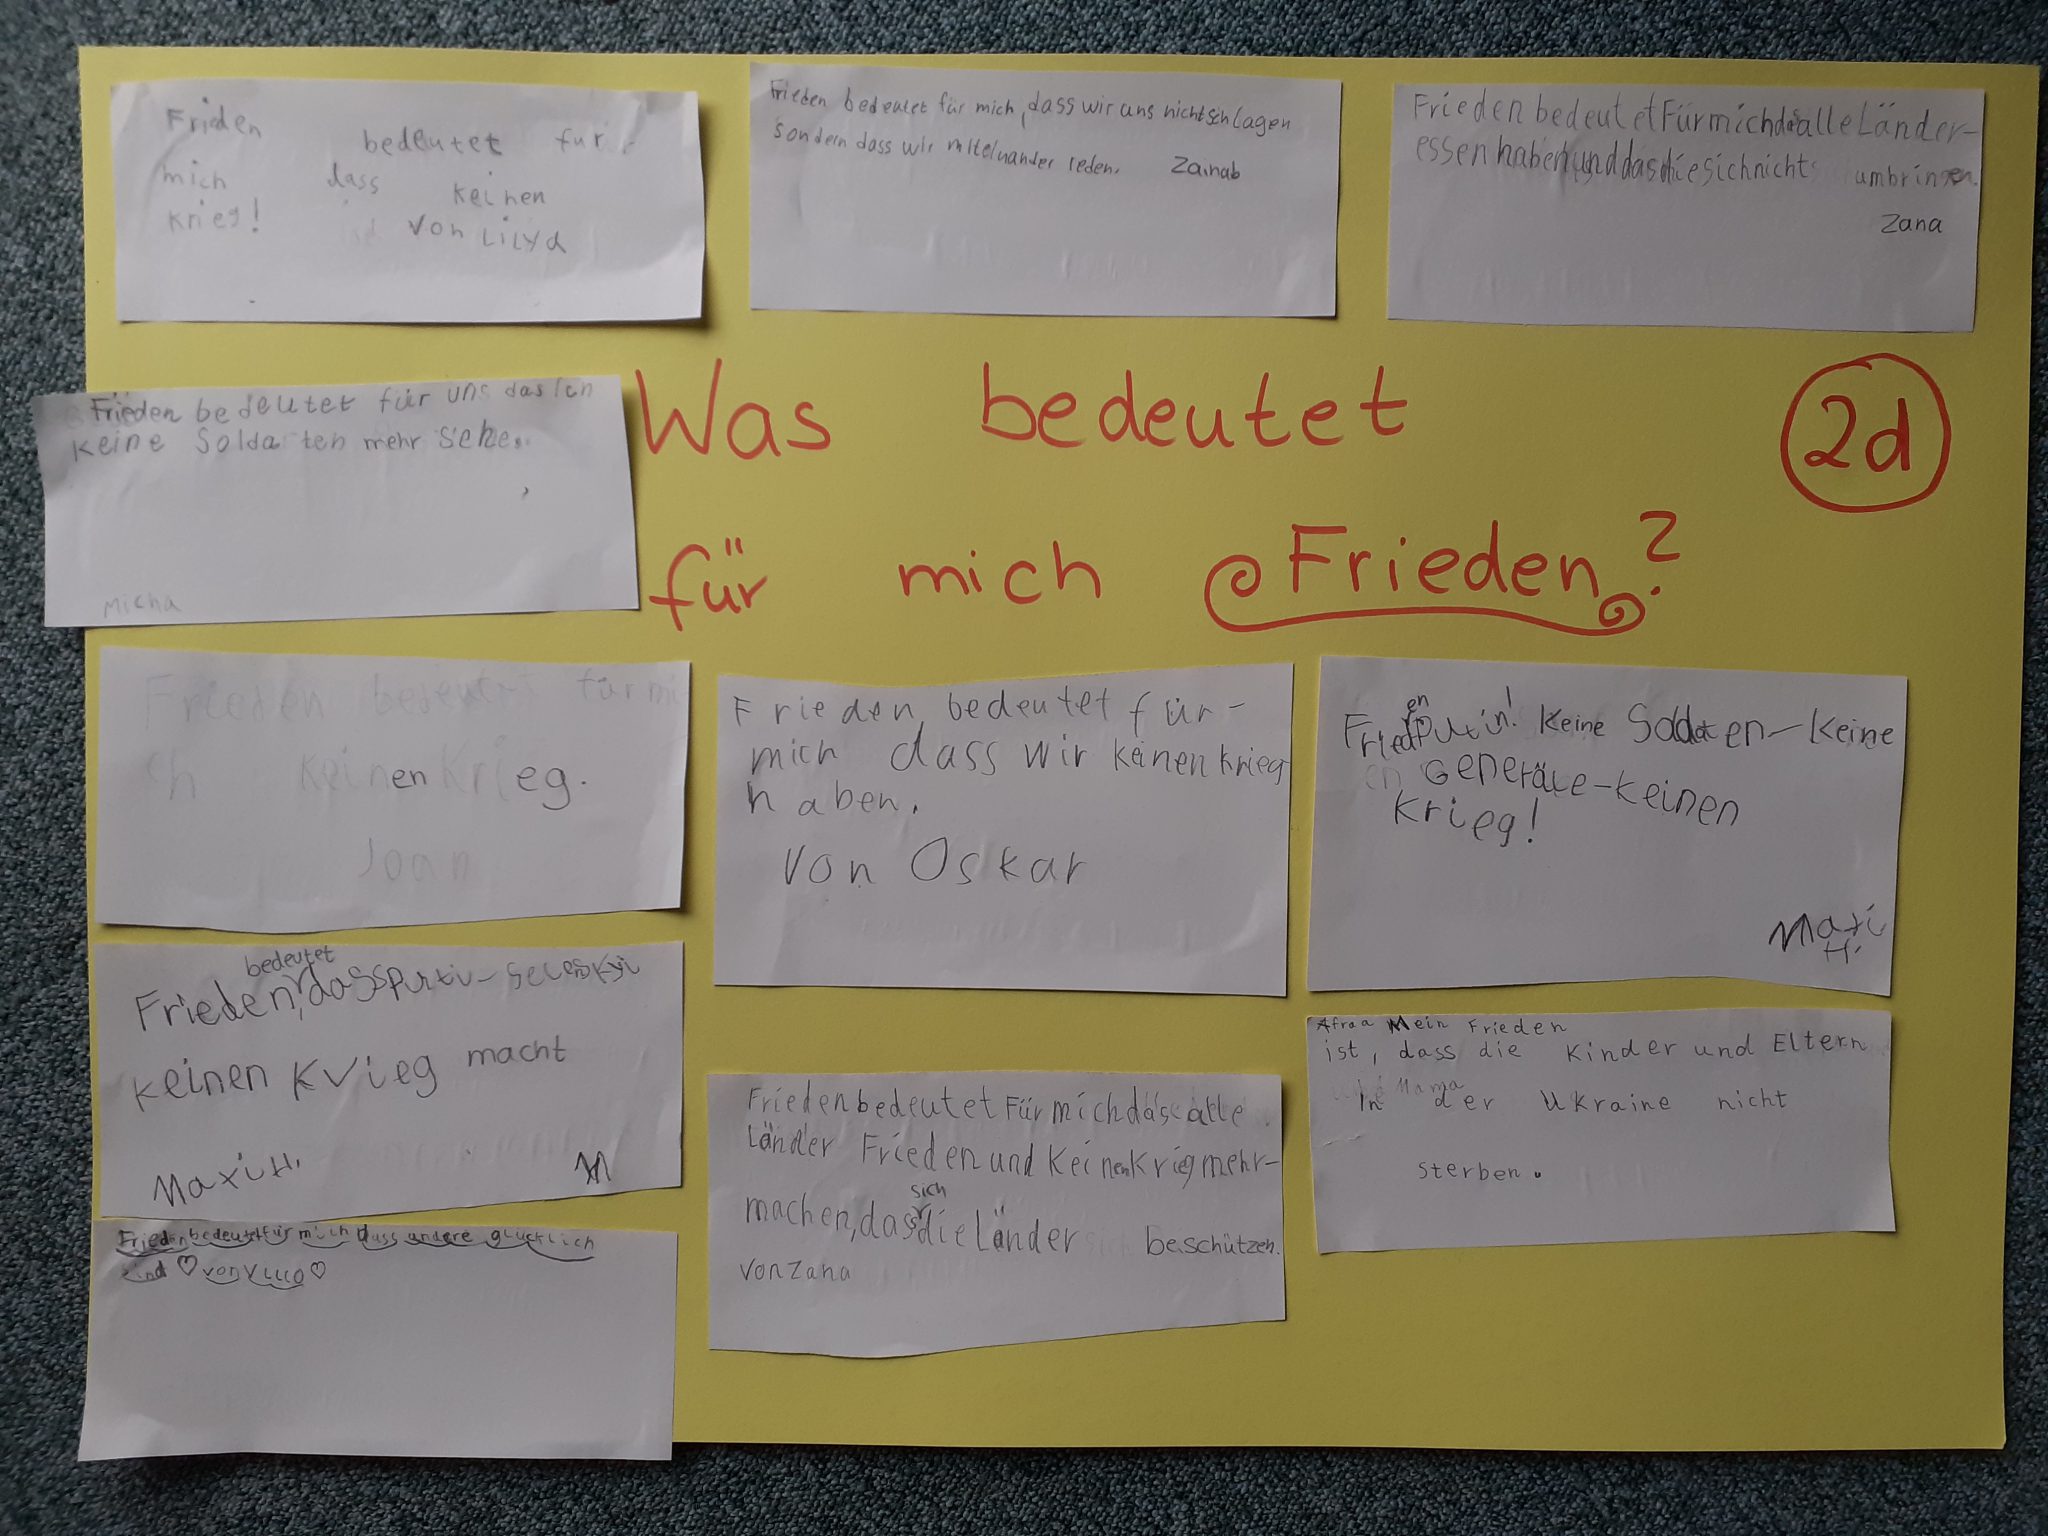 Frieden
bedeutet für
mich dass keinen
Krieg! ist von Lilya
Frieden bedeutet für mich, dass wir uns nicht schlagen
sondern dass wir miteinander reden. Zainab
Frieden bedeutet Für mich das alle Länder-
essen haben und das die sich nichts umbringen.
Zana
Was bedeutet
für mich Frieden?
2d
Frieden bedeutet für uns das Ich
keine Soldaten mehr sehe.
Micha
Frieden bedeutet für mi
ch keinen Krieg.
Joan
Frieden bedeutet für-
mich dass wir keinen krieg
haben.
von Oskar
Frieden Putin! Keine Soldaten-Keine
Generäle-keinen
Krieg!
Maxi
H.
bedeutet
Frieden, dass Putin-Selenskyi
keinen Krieg macht
Maxi H. M
Frieden bedeutet Für mich das alle
Länder Frieden und Keinen Krieg mehr-
sich
machen, das die Länder beschützen.
von Zana
Afraa Mein Frieden
ist, dass die Kinder und Eltern
Mama
in der Ukraine nicht
sterben.
Frieden bedeutet für mich dass andere glücklich
sind ♡ von ♡